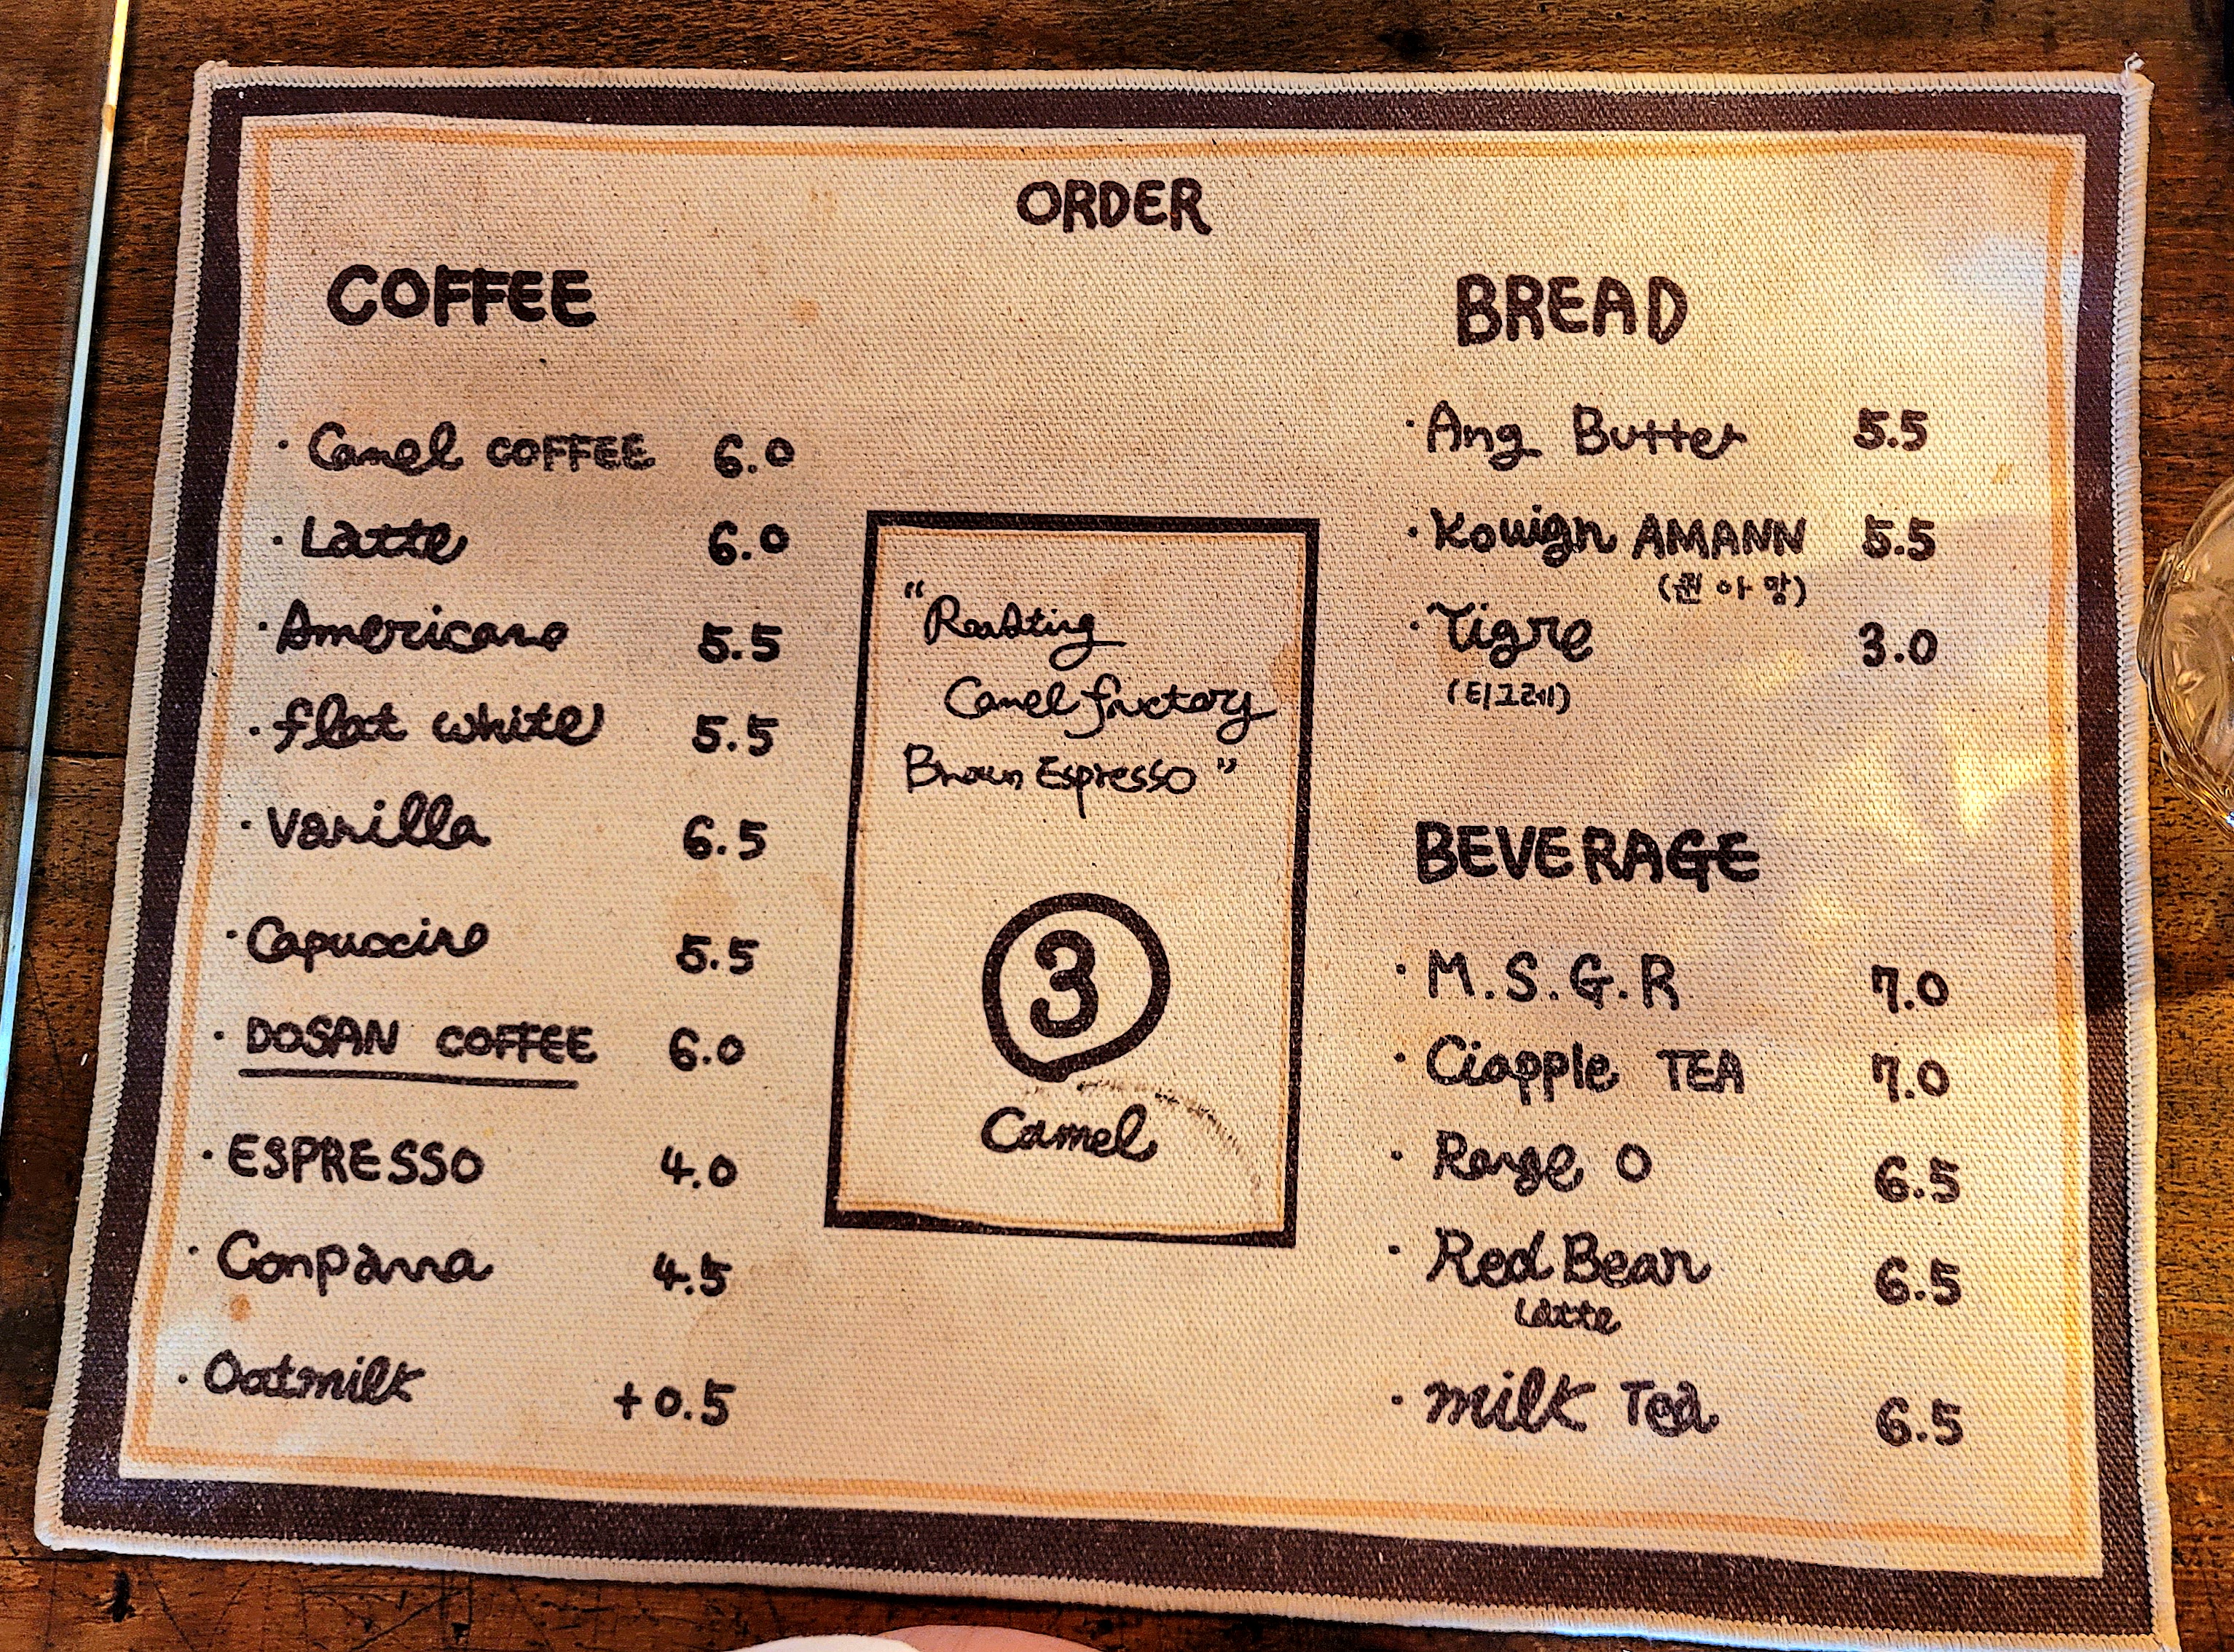 ORDER
COFFEE
· Camel COFFEE 6.0
· Latte 6.0
· Americano 5.5
· flat white 5.5
· Vanilla 6.5
· Capuccino 5.5
· DOSAN COFFEE 6.0
· ESPRESSO 4.0
· Conpanna 4.5
· Oatmilk +0.5
"Roasting
Camel factory
Brown Espresso"
3
Camel
BREAD
· Ang Butter 5.5
· Kouign AMANN 5.5
(퀸 아망)
· Tigre 3.0
(티그레)
BEVERAGE
· M.S.G.R 7.0
· Ciapple TEA 7.0
· Range O 6.5
· Red Bean 6.5
Latte
· milk Tea 6.5